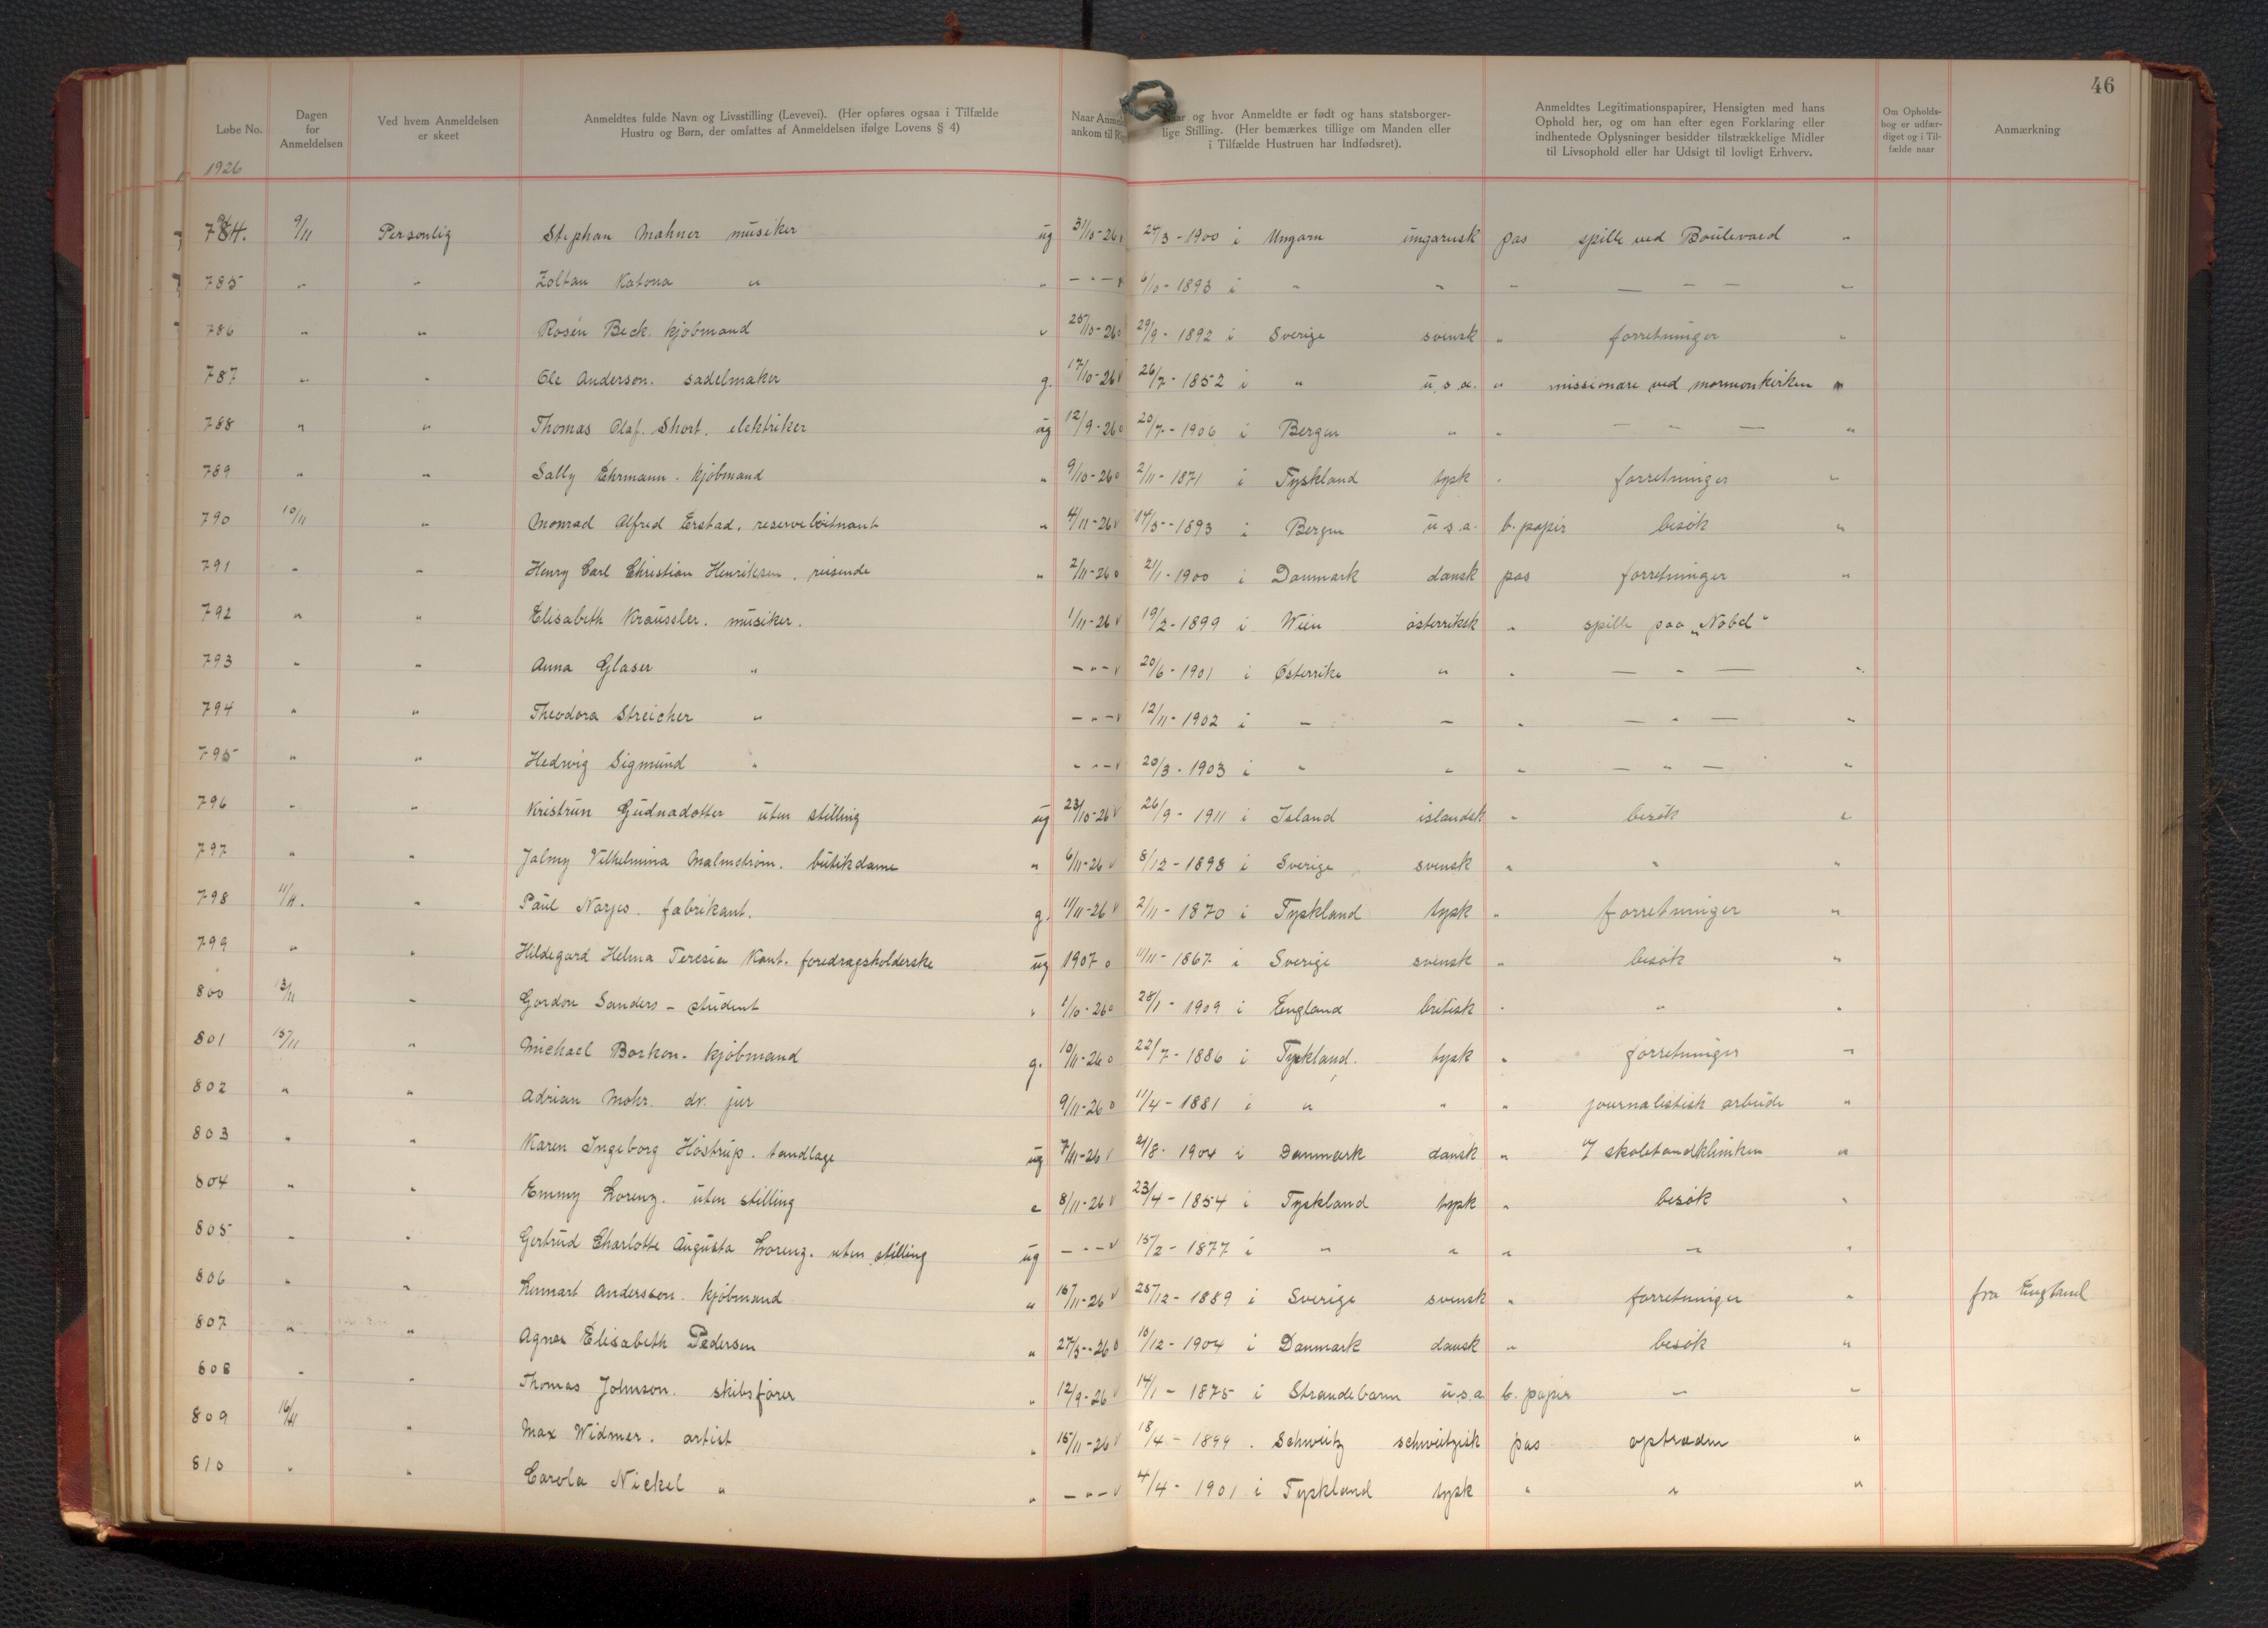 46
Løbe No.
Dagen for Anmeldelsen
Ved hvem Anmeldelsen er skeet
Anmeldtes fulde Navn og Livsstilling (Levevei). (Her opføres ogsaa i Tilfælde Hustru og Børn, der omfattes af Anmeldelsen ifølge Lovens § 4)
Naar Anmel ankom til R
og hvor Anmeldte er født og hans statsborgerlige Stilling. (Her bemærkes tillige om Manden eller i Tilfælde Hustruen har Indfødsret).
Anmeldtes Legitimationspapirer, Hensigten med hans Ophold her, og om han efter egen Forklaring eller indhentede Oplysninger besidder tilstrækkelige Midler til Livsophold eller har Udsigt til lovligt Erhverv.
Om Opholdsbog er udfærdiget og i Tilfælde naar
Anmærkning
1926
784. 9/11 Personlig Stephan Mahner musiker ug 31/10-26 24/3-1900 i Ungarn ungarnsk pas spille ved Boulevard "
785 " " Zoltan Katona " " - " - 6/10-1893 i " " " — — — "
786 " " Rosén Beck. kjøbmand " 25/10-26 29/9-1892 i Sverige svensk " forretninger "
787 " " Ole Anderson. sadelmaker g. 17/10-26 26/7-1852 i " u.s.a. " missionære ved mormonkirken "
788 " " Thomas Olaf. Short. elektriker ug 12/9-26 20/7-1906 i Bergen " " — " — "
789 " " Sally Ehrmann. kjøbmand " 9/10-26 2/11-1871 i Tyskland tysk " forretninger "
790 10/11 " Monrad Alfred Erstad, reserveløitnant " 4/11-26 14/5-1893 i Bergen u.s.a. b. papir besøk "
791 " " Henry Carl Christian Henriksen. reisende " 2/11-26 2/1-1900 i Danmark dansk pas forretninger "
792 " " Elisabeth Kraussler. musiker. 1/11-26 19/2-1899 i Wien østerriksk " spille paa "Nobel"
793 " " Anna Glaser " - " - 20/6-1901 i Østerrike " " — " — "
794 " " Theodora Streicher " - " - 12/11-1902 i " " " — " — "
795 " " Hedwig Sigmund " - " - 20/3-1903 i " " " — " — "
796 " " Kristrun Gudnadotter uten stilling ug 23/10-26 26/9-1911 i Island islandsk " besøk "
797 " " Jalmy Vilhelmina Malmstrøm. butikdame " 6/11-26 8/12-1898 i Sverige svensk " " "
798 11/11. " Paul Narjes. fabrikant. g. 11/11-26 2/11-1870 i Tyskland tysk " forretninger "
799 " " Hildegard Helma Teresia Kant. foredragsholderske ug 1907 11/11-1867 i Sverige svensk " besøk "
800 13/11 " Gordon Sanders - student " 1/10-26 28/1-1909 i England britisk " " "
801 15/11 " Michael Borkon. kjøbmand g. 10/11-26 22/7-1886 i Tyskland. tysk " forretninger "
802 " " Adrian Mohr. dr. jur 9/11-26 11/4-1881 i " " " journalistisk arbeide "
803 " " Karen Ingeborg Høstrup. tandlæge ug 7/11-26 21/8-1904 i Danmark dansk " v/ skoletandklinikken "
804 " " Emmy Lorenz. uten stilling e 8/11-26 23/4-1854 i Tyskland tysk " besøk "
805 " " Gertrud Charlotte Augusta Lorenz. uten stilling ug - " - 15/2-1877 i " " " " "
806 " " Lennart Andersson. kjøbmand " 15/11-26 25/12-1889 i Sverige svensk " forretninger " fra England
807 " " Agnes Elisabeth Pedersen " 27/5-26 10/12-1904 i Danmark dansk " besøk "
808 " " Thomas Johnson. skibsfører " 12/9-26 14/1-1875 i Strandebarm u.s.a b. papir " "
809 16/11 " Max Widmer. artist " 15/11-26 18/4-1899. Schweitz schweitzisk pas optræden "
810 " " Carola Nickel " " - " - 4/4-1901 i Tyskland tysk " " "